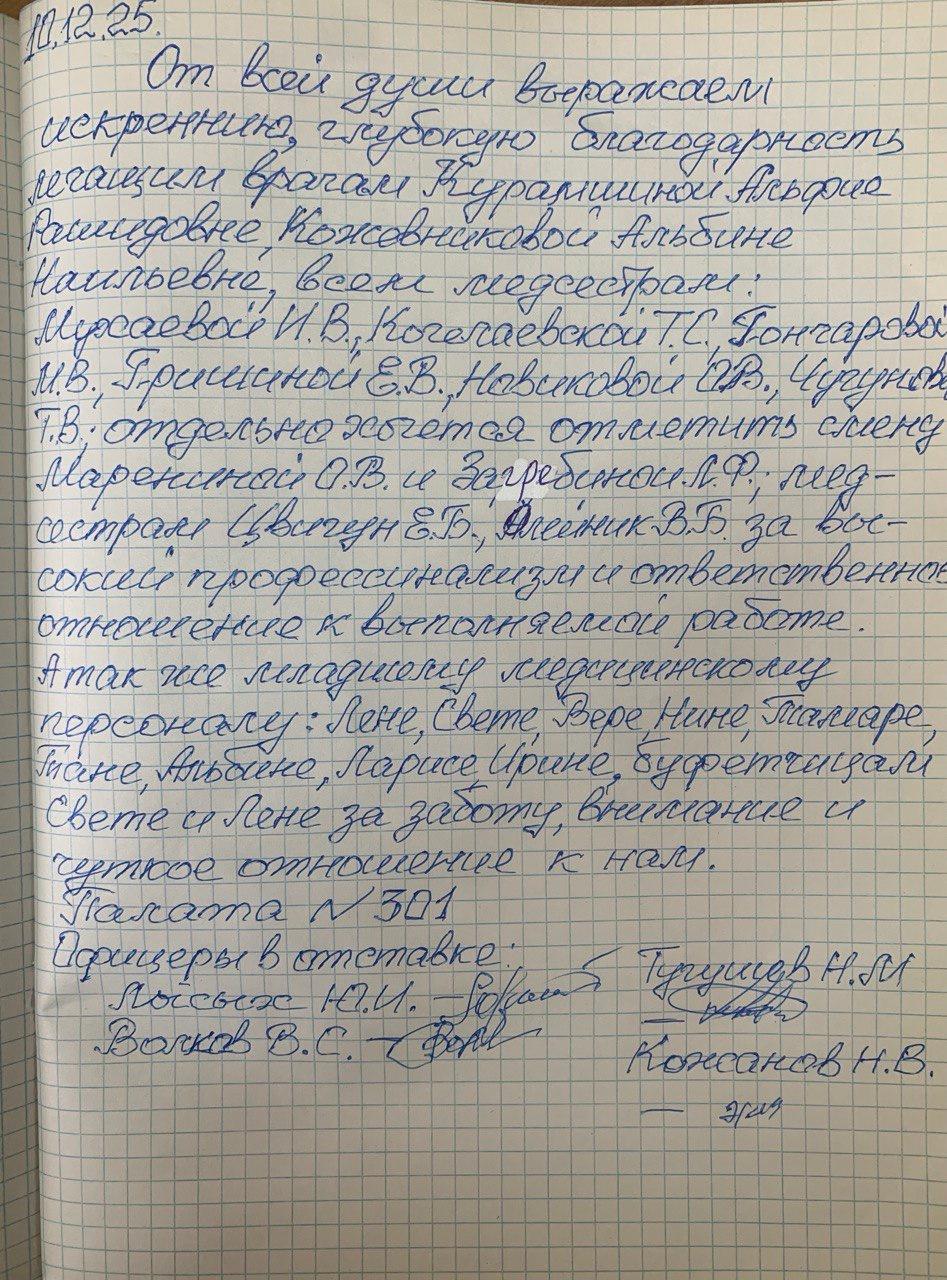 10.12.25.
От всей души выражаем
искреннию, глубокую благодарность
лечащим врачам Курамшиной Альфие
Рашидовне, Кожевниковой Альбине
Наильевне, всем медсестрам:
Мусаевой И.В., Кочелаевской Т.С., Гончаровой
М.В., Гришиной Е.В., Новиковой О.В., Чугунова
Т.В.; отдельно хочется отметить смену
Марениной О.В. и Загребиной Л.Ф.; мед-
сестрам Цвигун Е.Б., Олейник В.Б. за вы-
сокий профессинализм и ответственное
отношение к выполняемой работе.
А так же младшему медицинскому
персоналу: Лене, Свете, Вере, Нине, Тамаре,
Тане, Альбине, Ларисе, Ирине, буфетчицам
Свете и Лене за заботу, внимание и
чуткое отношение к нам.
Палата № 301
Офицеры в отставке:
Лысых Ю.И. –
Волков В.С. –
Тугушев Н.М
–
Кожанов Н.В.
–